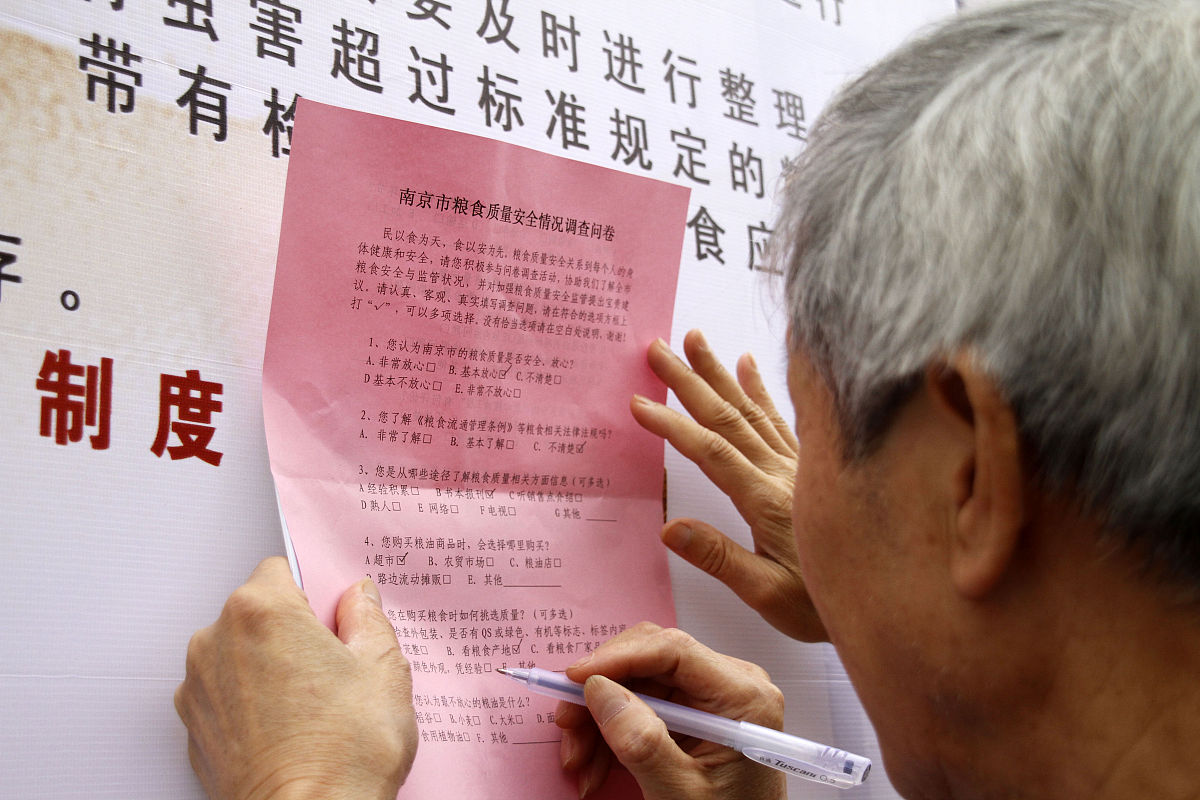 虫害要及时进行整理
带有检
超过标准规定的
食应
存。
制度
南京市粮食质量安全情况调查问卷
民以食为天，食以安为先，粮食质量安全关系到每个人的身
体健康和安全，请您积极参与问卷调查活动，协助我们了解全市
粮食安全与监管状况，并对加强粮食质量安全监管提出宝贵建
议。请认真、客观、真实填写调查问题，请在符合的选项方框上
打“√”，可以多项选择，没有恰当选项请在空白处说明。谢谢！
1、您认为南京市的粮食质量是否安全、放心？
A.非常放心□ B.基本放心☑ C.不清楚□
D基本不放心□ E.非常不放心□
2、您了解《粮食流通管理条例》等粮食相关法律法规吗？
A. 非常了解□ B. 基本了解□ C. 不清楚☑
3、您是从哪些途径了解粮食质量相关方面信息（可多选）
A经验积累□ B书本报刊☑ C听销售点介绍□
D熟人□ E 网络□ F电视□ G其他 ____
4、您购买粮油商品时，会选择哪里购买？
A超市☑ B、农贸市场□ C、粮油店□
路边流动摊贩□ E. 其他________
您在购买粮食时如何挑选质量？（可多选）
检查外包装、是否有QS或绿色、有机等标志、标签内容
完整□ B. 看粮食产地☑ C. 看粮食厂家
颜色外观，凭经验□ E. 其他
您认为最不放心的粮油是什么？
稻谷□ B.小麦□ C.大米□ D.面
食用植物油□ F. 其他 ________
Tuscani